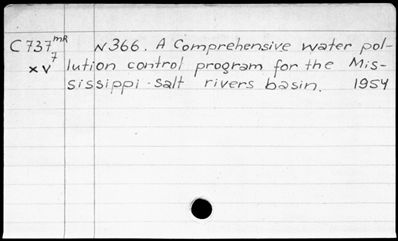 C737mR N366. A Comprehensive water pol-
7
xv lution control program for the Mis-
sissippi-salt rivers basin. 1954